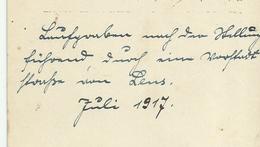 Laufgraben nach der Stellung
führend durch eine Vorstadt
straße von Lens.
Juli 1917.